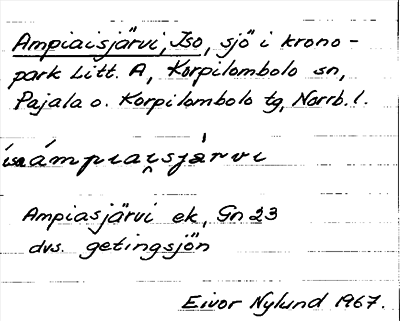 Ampiaisjärvi, Iso, sjö i krono-
park Litt. A, Korpilombolo sn,
Pajala o. Korpilombolo tg, Norrb. l.
ísɷámpiai̯sjä̀rvi
Ampiasjärvi ek, Gn 23
dvs. getingsjön
Eivor Nylund 1967.